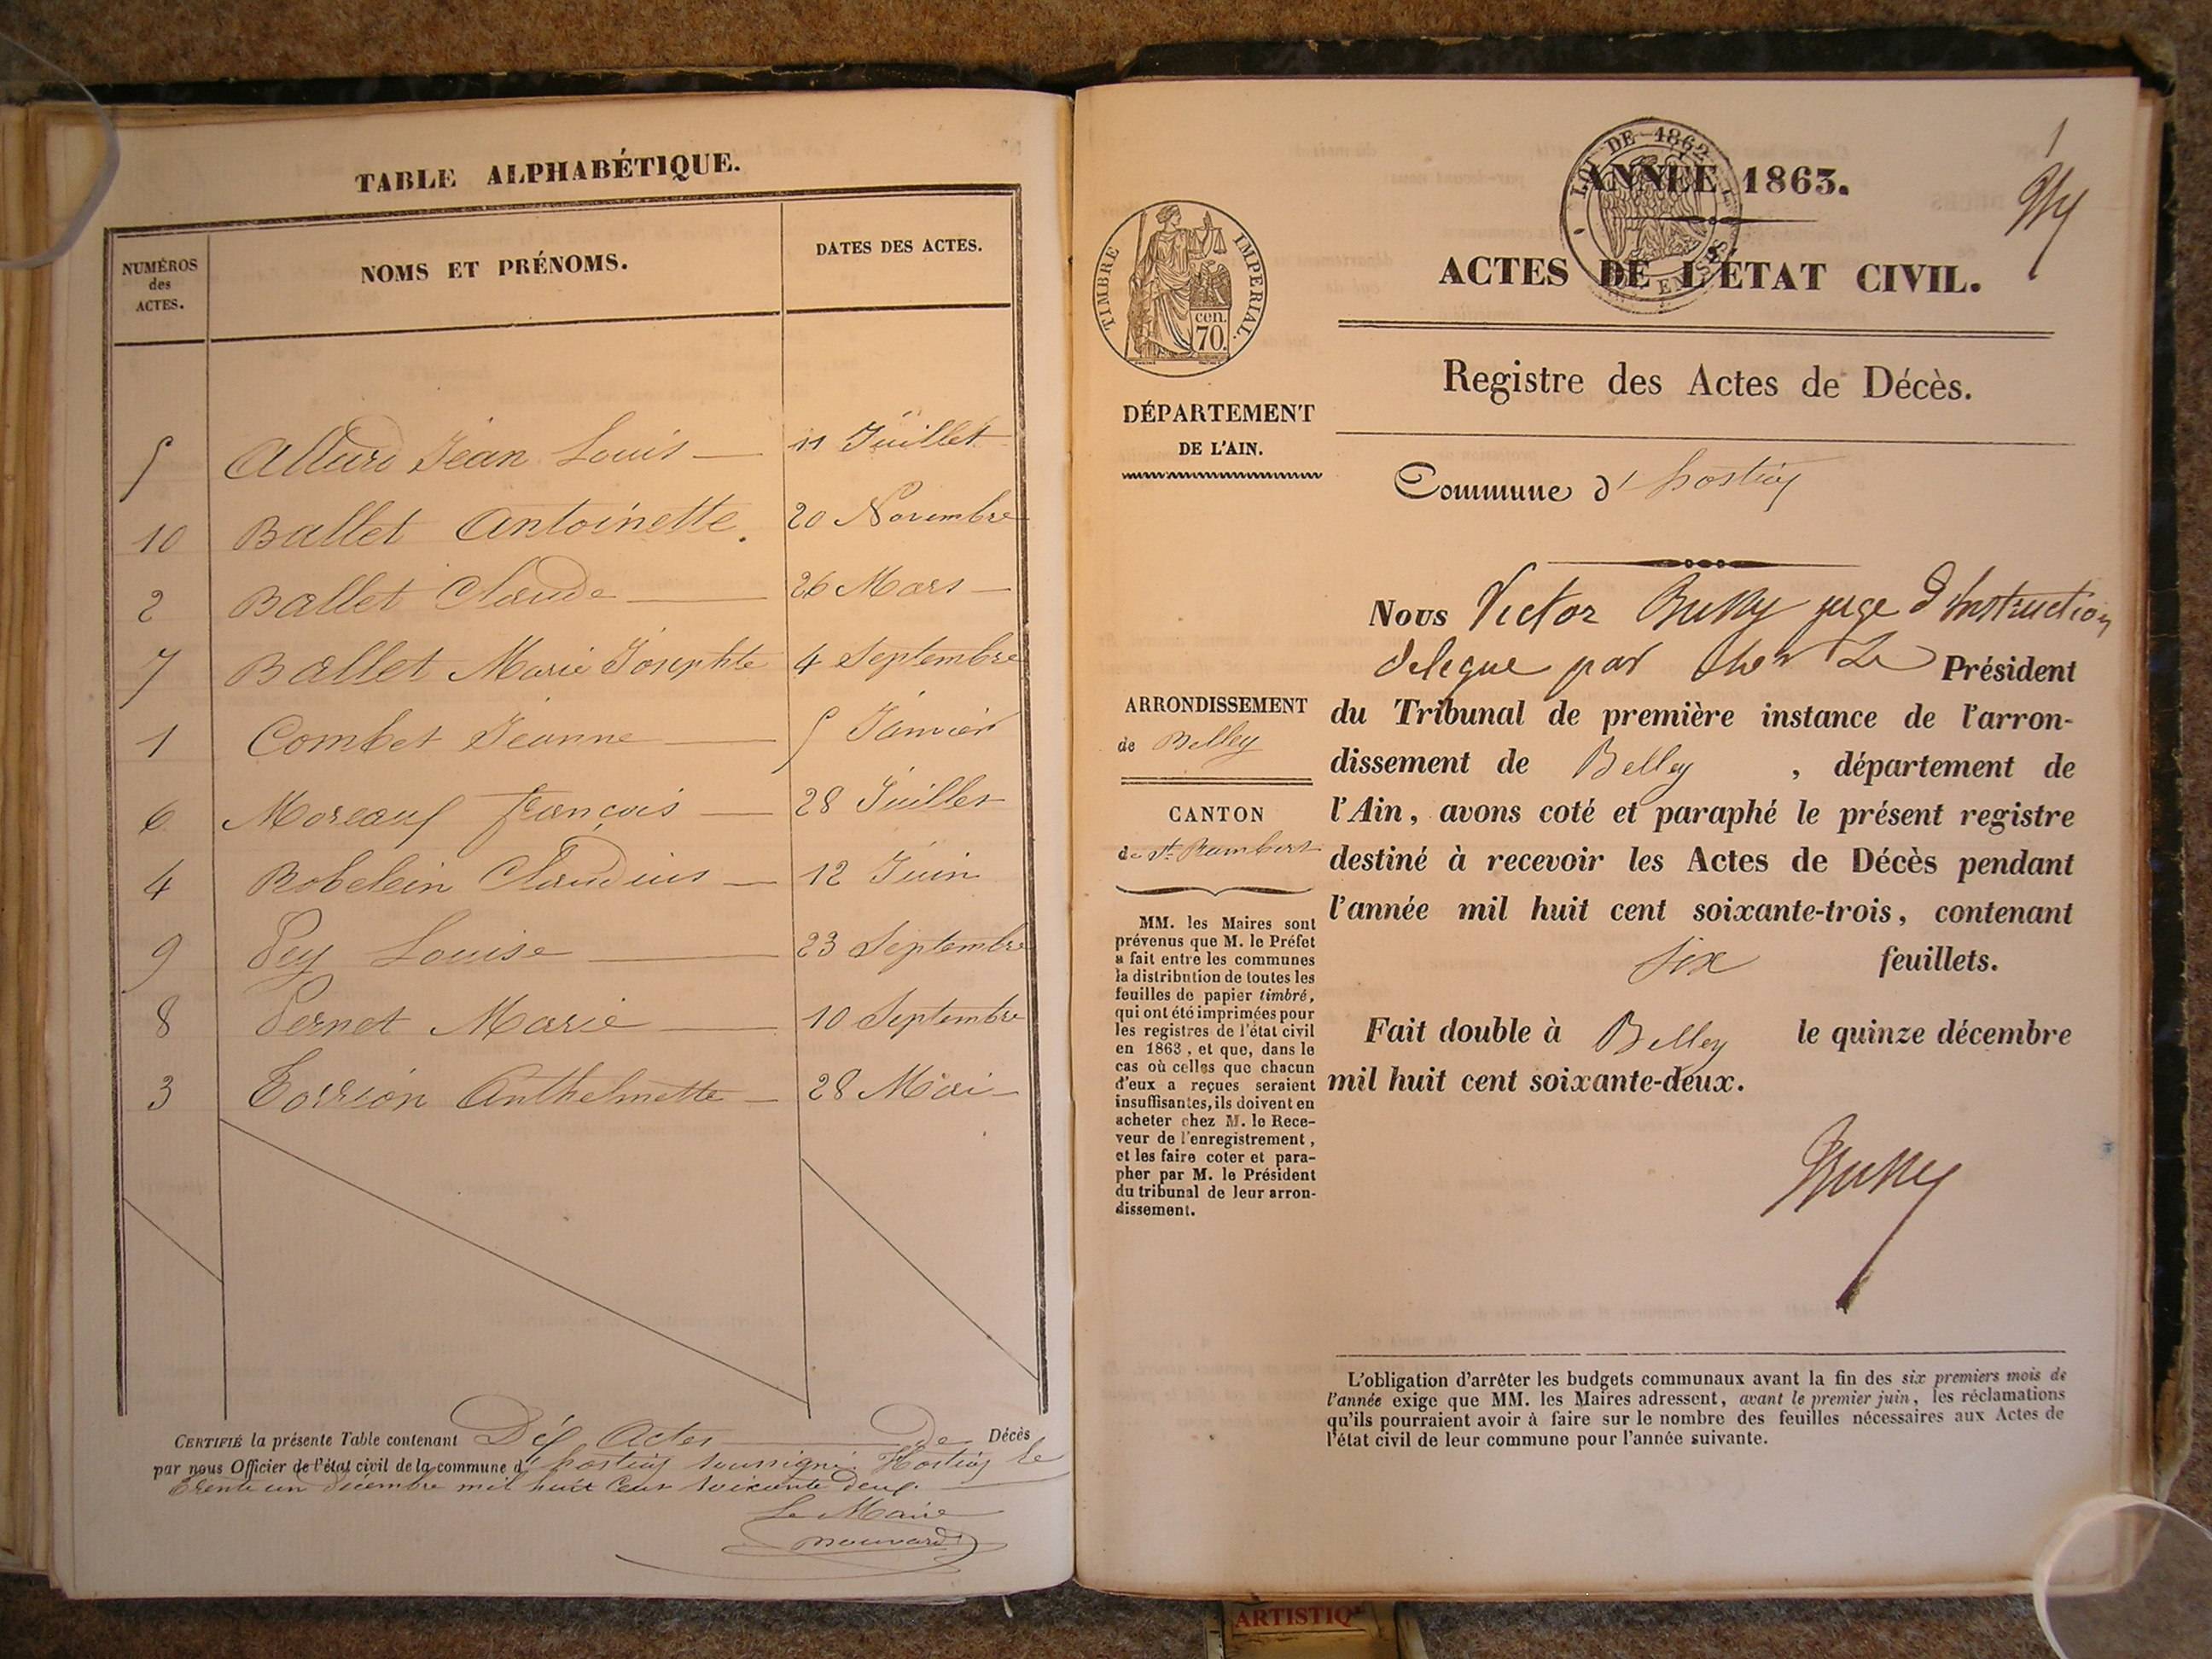 TABLE ALPHABÉTIQUE.
NUMÉROS
des
ACTES.
NOMS ET PRÉNOMS.
DATES DES ACTES.
5 Allard Jean Louis 11 Juillet
10 Ballet Antoinette. 20 Novembre
2 Ballet Claude 26 Mars
7 Ballet Marie Josephte 4 Septembre
1 Combet Jeanne 5 Janvier
6 Moreaux françois 28 Juillet
4 Robelein Claudius 12 Juin
9 Pey Louise 23 Septembre
8 Pernet Marie 10 Septembre
3 Torrion Anthelmette 28 Mai
CERTIFIÉ la présente Table contenant Dix Actes de Décès
par nous Officier de l'état civil de la commune d' hostias soussigné. Hostias le
trente un décembre mil huit cent soixante deux.
Le Maire
LOI DE 1862
ANNÉE 1863.
1
TIMBRE IMPÉRIAL.
cen.
70.
ACTES DE L'ÉTAT CIVIL.
Registre des Actes de Décès.
DÉPARTEMENT
DE L'AIN.
Commune d' hostias
ARRONDISSEMENT
de Belley
CANTON
de St. Rambert
MM. les Maires sont
prévenus que M. le Préfet
a fait entre les communes
la distribution de toutes les
feuilles de papier timbré,
qui ont été imprimées pour
les registres de l'état civil
en 1863, et que, dans le
cas où celles que chacun
d'eux a reçues seraient
insuffisantes, ils doivent en
acheter chez M. le Rece-
veur de l'enregistrement,
et les faire coter et para-
pher par M. le Président
du tribunal de leur arron-
dissement.
Nous Victor juge d'Instruction
delegue par Le Président
du Tribunal de première instance de l'arron-
dissement de Belley , département de
l'Ain, avons coté et paraphé le présent registre
destiné à recevoir les Actes de Décès pendant
l'année mil huit cent soixante-trois, contenant
six feuillets.
Fait double à Belley le quinze décembre
mil huit cent soixante-deux.
L'obligation d'arrêter les budgets communaux avant la fin des six premiers mois de
l'année exige que MM. les Maires adressent, avant le premier juin, les réclamations
qu'ils pourraient avoir à faire sur le nombre des feuilles nécessaires aux Actes de
l'état civil de leur commune pour l'année suivante.
ARTISTIQ